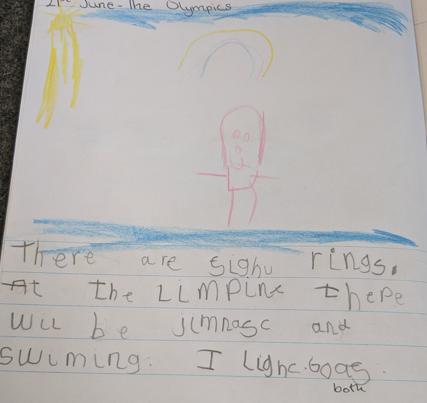 21st June - The Olympics
There are sighu rings.
At the LLMPINC there
wll be jimnasc and
swiming. I Lighc.boas.
both